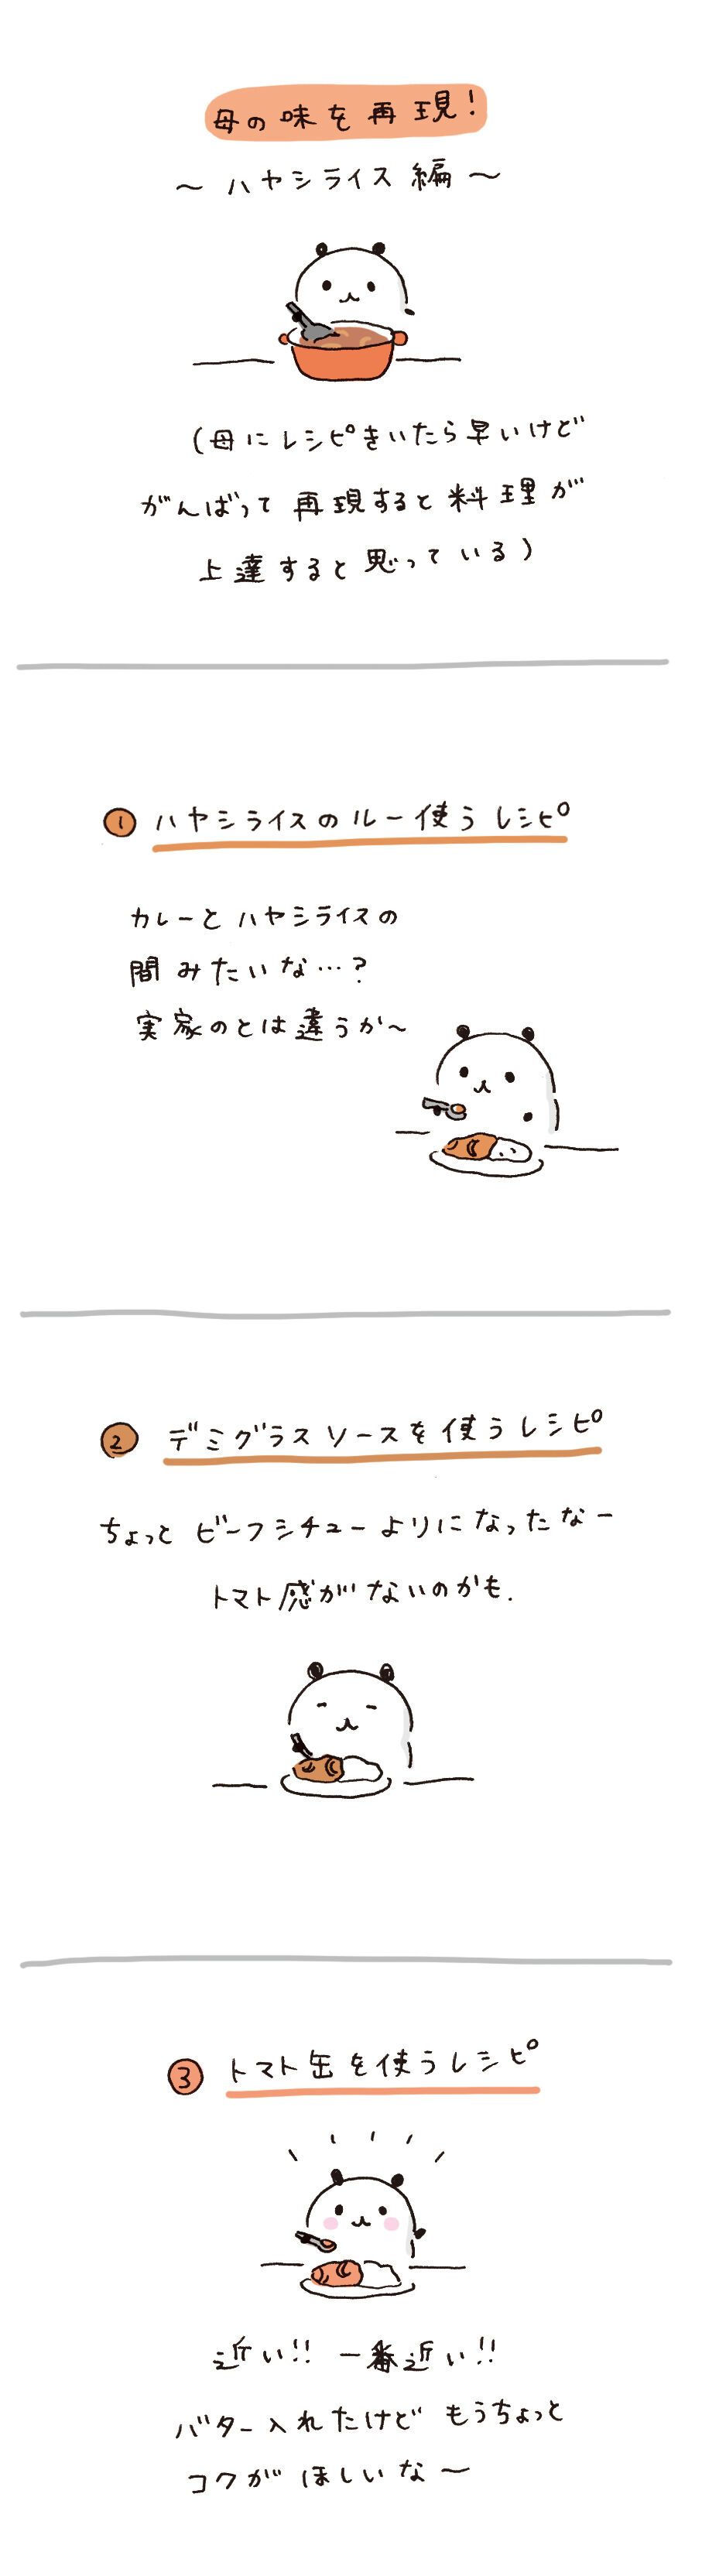 母の味を再現!
～ハヤシライス編～
(母にレシピきいたら早いけど
がんばって再現すると料理が
上達すると思っている)
1 ハヤシライスのルー使うレシピ
カレーとハヤシライスの
間みたいな…?
実家のとは違うか～
2 デミグラスソースを使うレシピ
ちょっとビーフシチューよりになったなー
トマト感がないのかも.
3 トマト缶を使うレシピ
近い!! 一番近い!!
バター入れたけど もうちょっと
コクがほしいな～